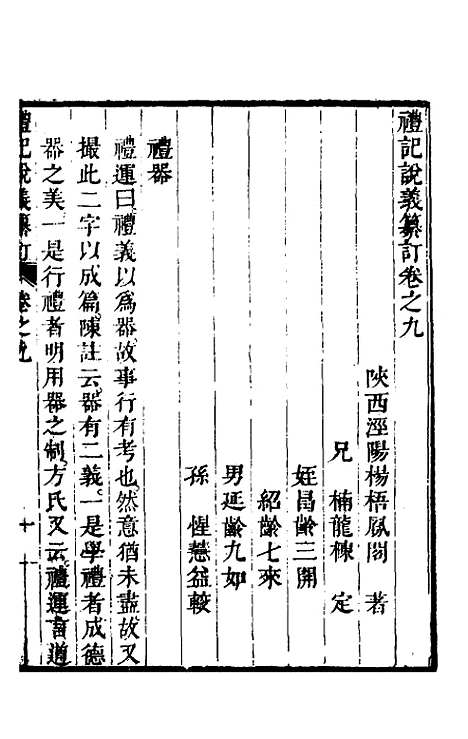 禮記說義纂訂卷之九
陝西涇陽楊梧鳳閣著
兄楠龍棟定
姪昌齡三開
紹齡七來
男延齡九如
孫惺慧益較
禮器
禮運曰禮義以爲器故事行有考也然意猶未盡故又
撮此二字以成篇陳註云器有二義一是學禮者成德
器之美一是行禮者明用器之制方氏又云禮運言道
禮記說義纂訂 卷之九 一